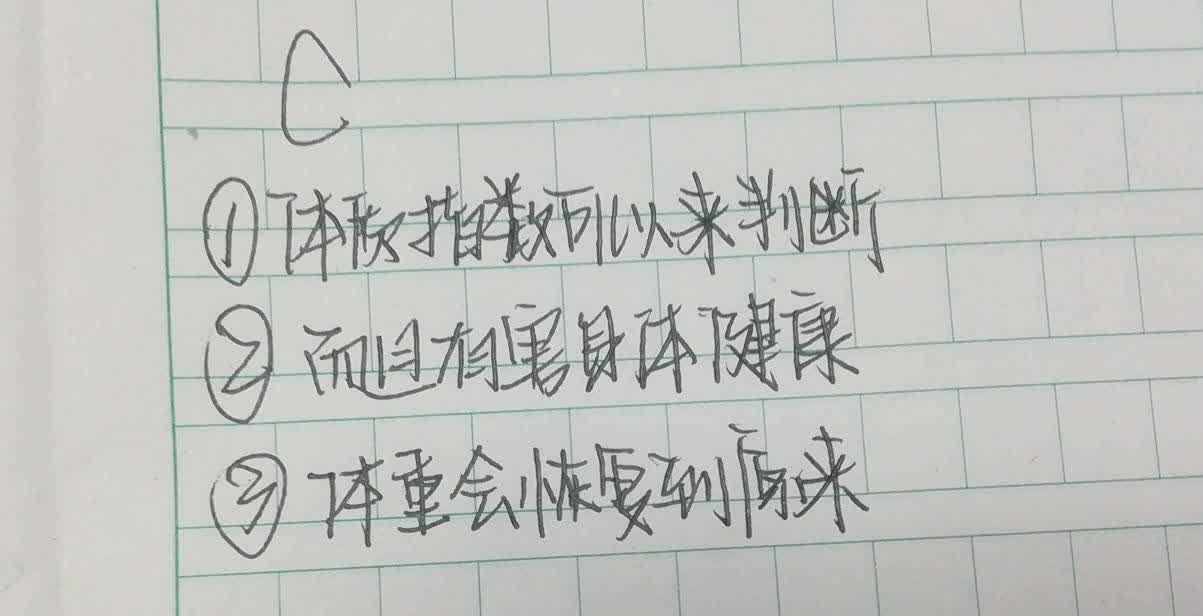 C
①体质指数可以来判断
②而且有害身体健康
③体重会恢复到原来